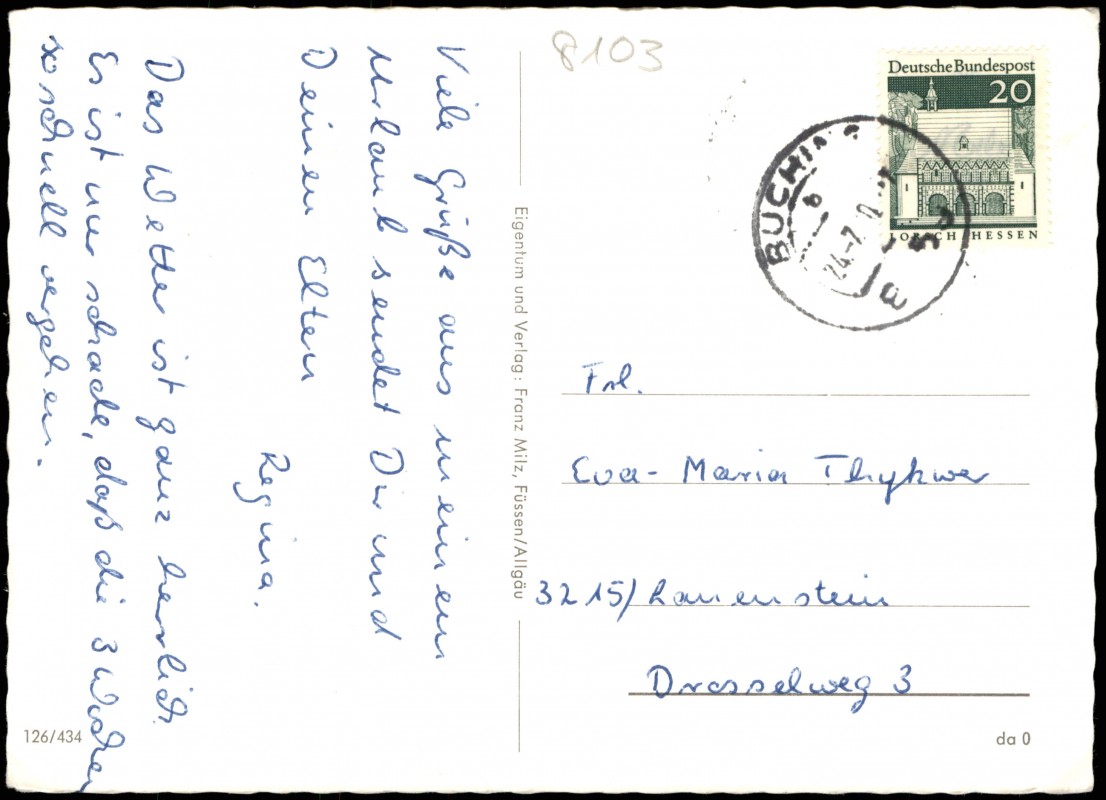 Viele Grüße aus meinem
Urlaub sendet Dir und
Deinen Eltern
Regina.
Das Wetter ist ganz herrlich.
Es ist nur schade, daß die 3 Wochen
so schnell vergehen.
126/434
Eigentum und Verlag: Franz Milz, Füssen/Allgäu
8103
Deutsche Bundespost
20
LORSCH HESSEN
24.-7.
Frl.
Eva-Maria Thykwer
3215/Lauenstein
Drosselweg 3
da 0